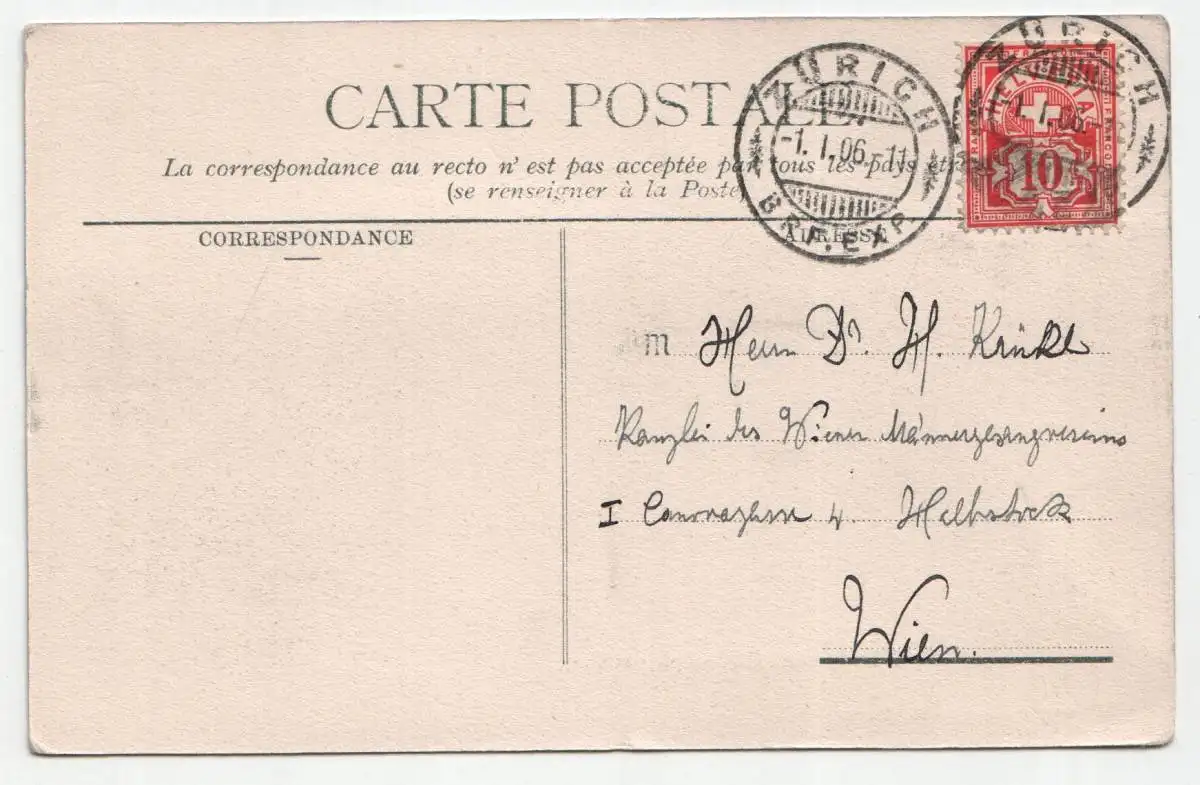 CARTE POSTALE
La correspondance au recto n'est pas acceptée par tous les pays
(se renseigner à la Poste)
CORRESPONDANCE
ADRESSE
ZÜRICH
-1.I.06.-11
BRF.EXP.
ZÜRICH
I.06
HELVETIA
FRANCO
10
M
Herrn Dr. H. Krükl
Kanzlei des Wiener Männergesangvereins
I 4
Wien.